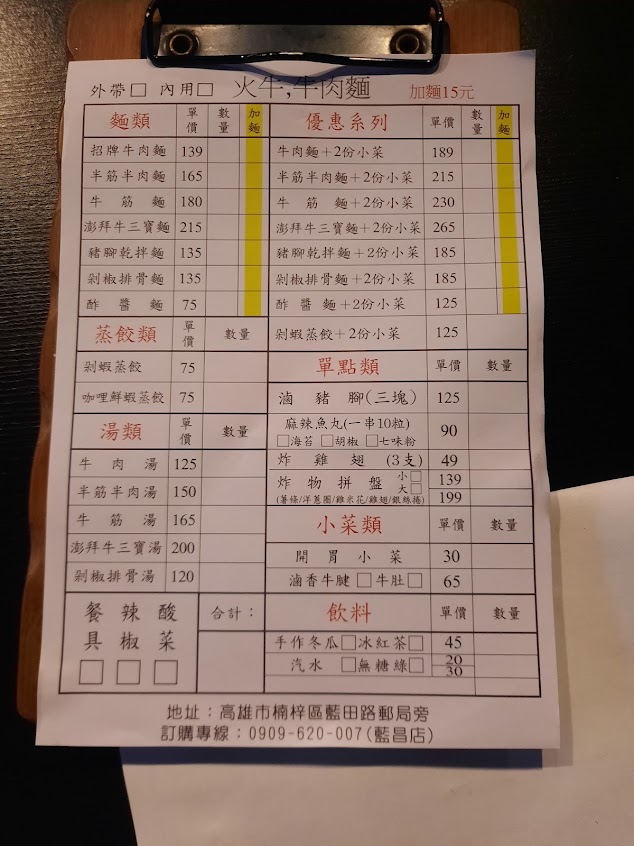 外帶□ 內用□ 火牛,牛肉麵 加麵15元
麵類 單價 數量 加麵
招牌牛肉麵 139
半筋半肉麵 165
牛筋麵 180
澎拜牛三寶麵 215
豬腳乾拌麵 135
剁椒排骨麵 135
酢醬麵 75
蒸餃類 單價 數量
剁蝦蒸餃 75
咖哩鮮蝦蒸餃 75
湯類 單價 數量
牛肉湯 125
半筋半肉湯 150
牛筋湯 165
澎拜牛三寶湯 200
剁椒排骨湯 120
餐具□ 辣椒□ 酸菜□
合計：
優惠系列 單價 數量 加麵
牛肉麵＋2份小菜 189
半筋半肉麵＋2份小菜 215
牛筋麵＋2份小菜 230
澎拜牛三寶麵＋2份小菜 265
豬腳乾拌麵＋2份小菜 185
剁椒排骨麵＋2份小菜 185
酢醬麵＋2份小菜 125
剁蝦蒸餃＋2份小菜 125
單點類 單價 數量
滷豬腳(三塊) 125
麻辣魚丸(一串10粒) 90
□海苔 □胡椒 □七味粉
炸雞翅(3支) 49
炸物拼盤 小□ 139
大□ 199
(薯條/洋蔥圈/雞米花/雞翅/銀絲捲)
小菜類 單價 數量
開胃小菜 30
滷香牛腱□牛肚□ 65
飲料 單價 數量
手作冬瓜□冰紅茶□ 45
汽水□無糖綠□ 20
30
地址：高雄市楠梓區藍田路郵局旁
訂購專線：0909-620-007(藍昌店)